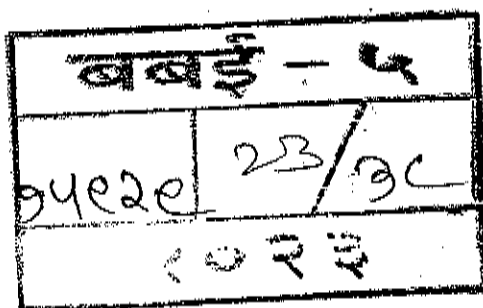 बबई - ५
१५९२९ 23/३८
२०२३